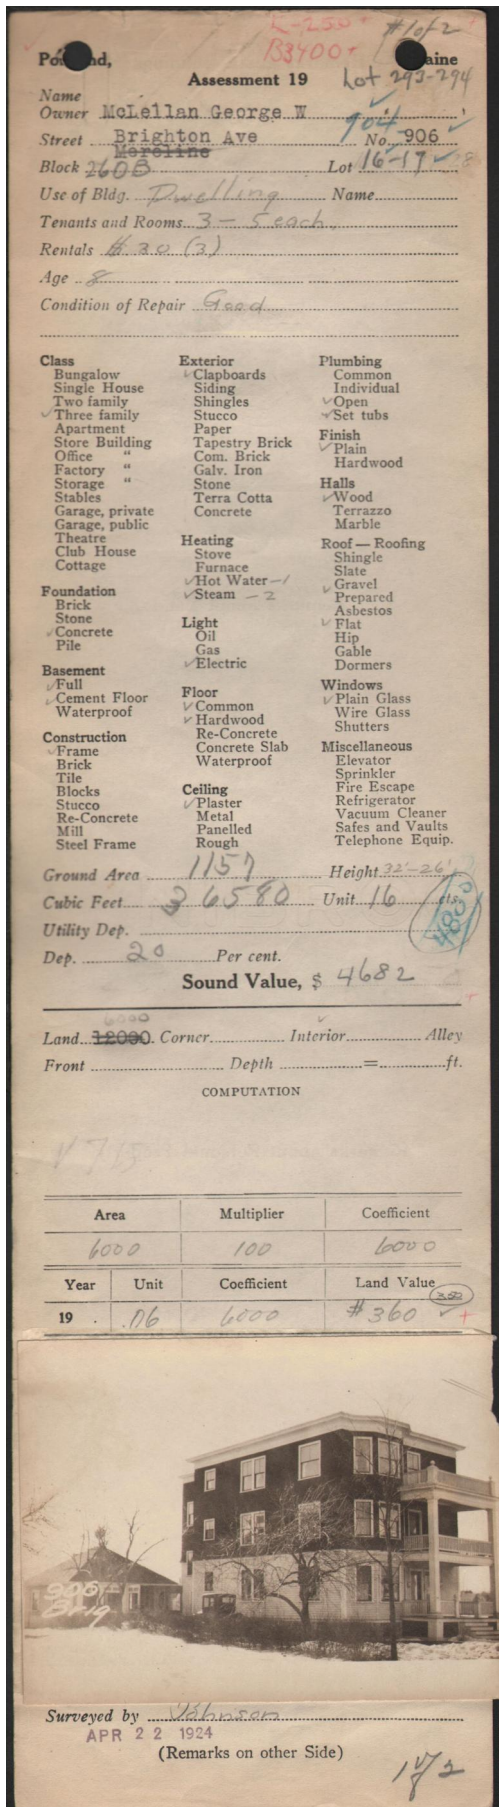 L-250+ #1 of 2
B3400+
Portland, Maine
Assessment 19 Lot 293-294
Name
Owner McLellan George W
904
Street Brighton Ave No. 906
Moreline
Block 260B Lot 16-17
Use of Bldg. Dwelling Name
Tenants and Rooms 3 - 5 each.
Rentals $30 (3)
Age 8
Condition of Repair Good
Class
Bungalow
Single House
Two family
✓Three family
Apartment
Store Building
Office "
Factory "
Storage "
Stables
Garage, private
Garage, public
Theatre
Club House
Cottage
Foundation
Brick
Stone
✓Concrete
Pile
Basement
✓Full
✓Cement Floor
Waterproof
Construction
✓Frame
Brick
Tile
Blocks
Stucco
Re-Concrete
Mill
Steel Frame
Exterior
✓Clapboards
Siding
Shingles
Stucco
Paper
Tapestry Brick
Com. Brick
Galv. Iron
Stone
Terra Cotta
Concrete
Heating
Stove
Furnace
✓Hot Water-1
✓Steam - 2
Light
Oil
Gas
✓Electric
Floor
✓Common
✓Hardwood
Re-Concrete
Concrete Slab
Waterproof
Ceiling
✓Plaster
Metal
Panelled
Rough
Plumbing
Common
Individual
✓Open
✓Set tubs
Finish
✓Plain
Hardwood
Halls
✓Wood
Terrazzo
Marble
Roof — Roofing
Shingle
Slate
✓Gravel
Prepared
Asbestos
✓Flat
Hip
Gable
Dormers
Windows
✓Plain Glass
Wire Glass
Shutters
Miscellaneous
Elevator
Sprinkler
Fire Escape
Refrigerator
Vacuum Cleaner
Safes and Vaults
Telephone Equip.
Ground Area 1157 Height 32'-26'
Cubic Feet 36580 Unit 16 cts.
Utility Dep.
Dep. 20 Per cent.
Sound Value, $ 4682
6000
Land 12000. Corner Interior ✓ Alley
Front Depth = ft.
COMPUTATION
Area Multiplier Coefficient
6000 100 6000
Year Unit Coefficient Land Value
350
19 . .06 6000 $360 ✓+
906
Brig
Surveyed by Johnson
APR 22 1924
(Remarks on other Side)